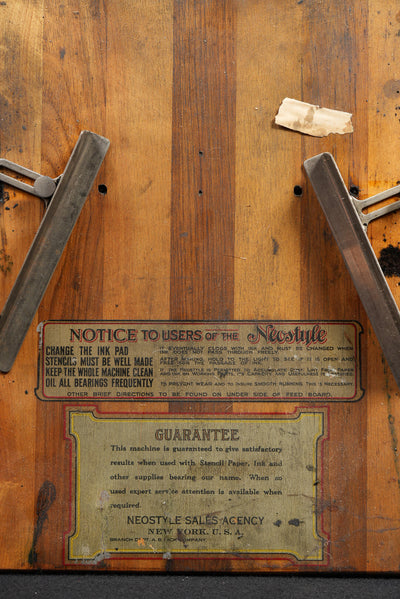 NOTICE TO USERS OF THE Neostyle
CHANGE THE INK PAD
STENCILS MUST BE WELL MADE
KEEP THE WHOLE MACHINE CLEAN
OIL ALL BEARINGS FREQUENTLY
IT EVENTUALLY CLOGS WITH INK AND MUST BE CHANGED WHEN
INK DOES NOT PASS THROUGH FREELY.
AFTER WRITING HOLD TO THE LIGHT TO SEE IF IT IS OPEN AND
TO PREVENT WEAR AND TO INSURE SMOOTH RUNNING THIS IS NECESSARY
OTHER BRIEF DIRECTIONS TO BE FOUND ON UNDER SIDE OF FEED BOARD.
GUARANTEE
This machine is guaranteed to give satisfactory
results when used with Stencil Paper, Ink and
other supplies bearing our name. When so
used expert service attention is available when
required.
NEOSTYLE SALES AGENCY
NEW YORK, U.S.A.
BRANCH OF A.B. DICK COMPANY